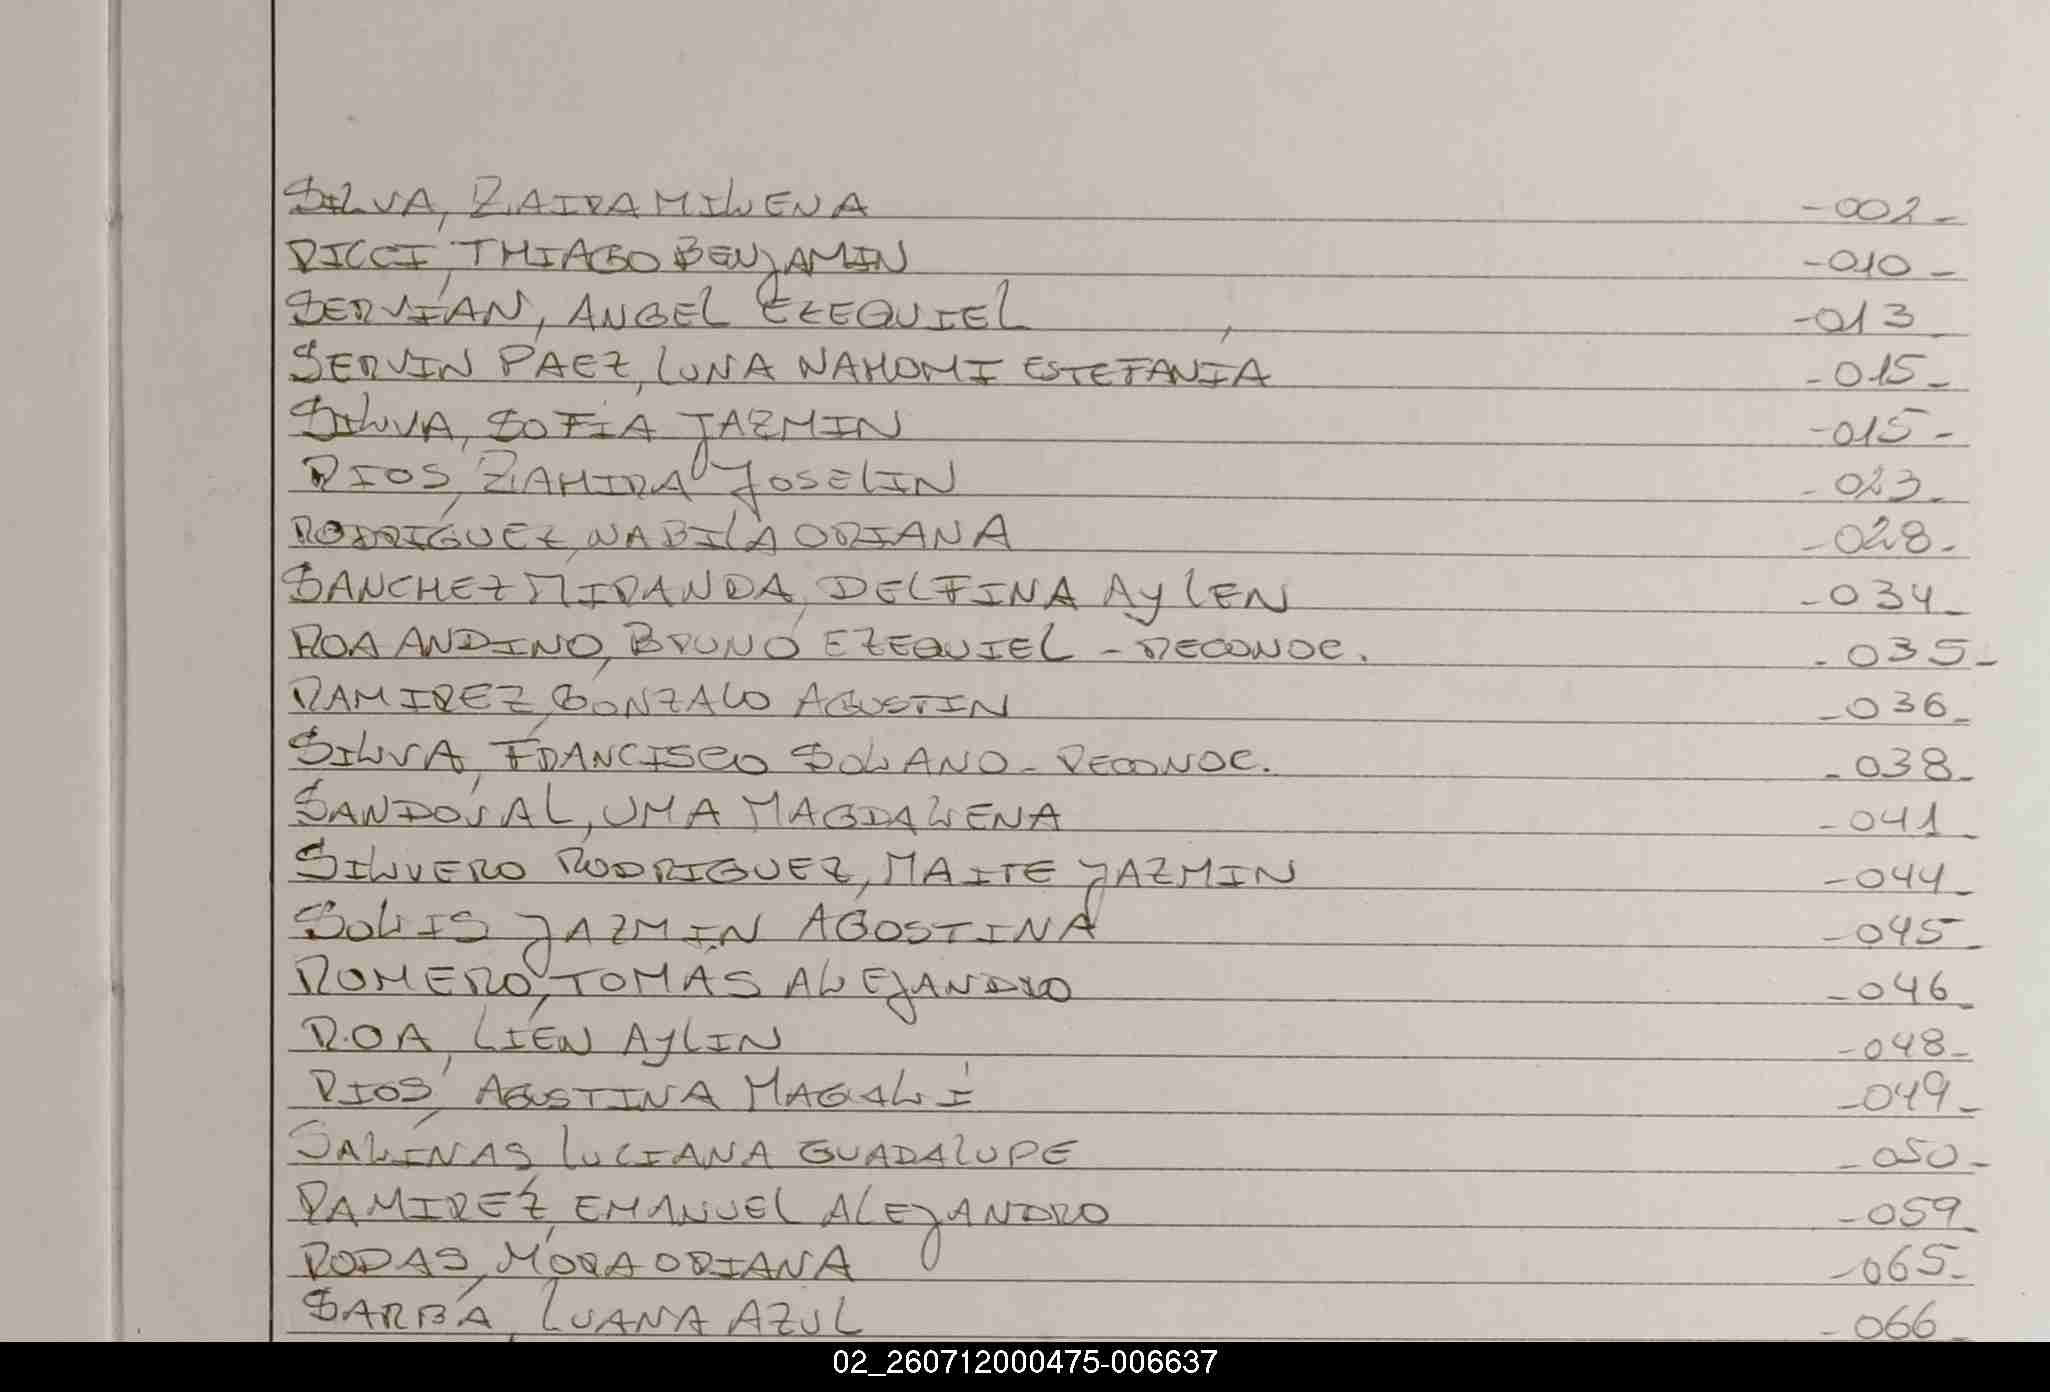 SILVA, ZAIRA MILENA -002-
RICCI, THIAGO BENJAMIN -010-
SERVIÁN, ANGEL EZEQUIEL -013
SERVIN PAEZ, LUNA NAHOMI ESTEFANÍA -015-
SILVA, SOFIA JAZMIN -015-
RIOS, ZAHIRA JOSELIN -023-
RODRÍGUEZ, NABILA ORIANA -028-
SANCHEZ MIRANDA, DELFINA AYLEN -034-
ROA ANDINO, BRUNO EZEQUIEL - RECONOC. -035-
RAMIREZ, GONZALO AGUSTIN -036-
SILVA, FRANCISCO SOLANO - RECONOC. -038-
SANDOVAL, UMA MAGDALENA -041-
SILVERO RODRIGUEZ, MAITE JAZMIN -044-
SOLIS JAZMIN AGOSTINA -045-
ROMERO, TOMÁS ALEJANDRO -046-
ROA, LIEN AYLIN -048-
RIOS, AGUSTINA MAGALÍ -049-
SALINAS, LUCIANA GUADALUPE -050-
RAMIREZ, EMANUEL ALEJANDRO -059-
RODAS, MORA ORIANA -065-
SARBÁ, LUANA AZUL -066-
02_260712000475-006637